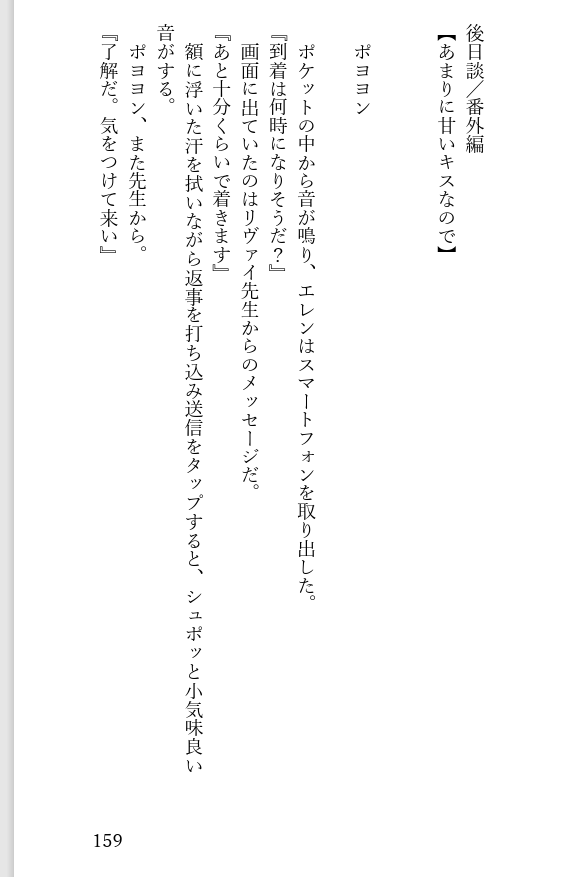 後日談／番外編
【あまりに甘いキスなので】
ポヨヨン
ポケットの中から音が鳴り、エレンはスマートフォンを取り出した。
『到着は何時になりそうだ？』
画面に出ていたのはリヴァイ先生からのメッセージだ。
『あと十分くらいで着きます』
額に浮いた汗を拭いながら返事を打ち込み送信をタップすると、シュポッと小気味良い
音がする。
ポヨヨン、また先生から。
『了解だ。気をつけて来い』
159